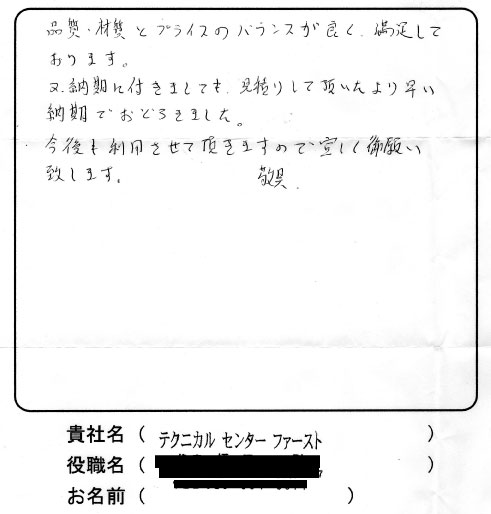 品質・材質とプライスのバランスが良く、満足して
おります。
又、納期に付きましても、見積りして頂いたより早い
納期でおどろきました。
今後も利用させて頂きますので宜しく御願い
致します。 敬具.
貴社名 ( テクニカル センター ファースト )
役職名 ( )
お名前 ( )